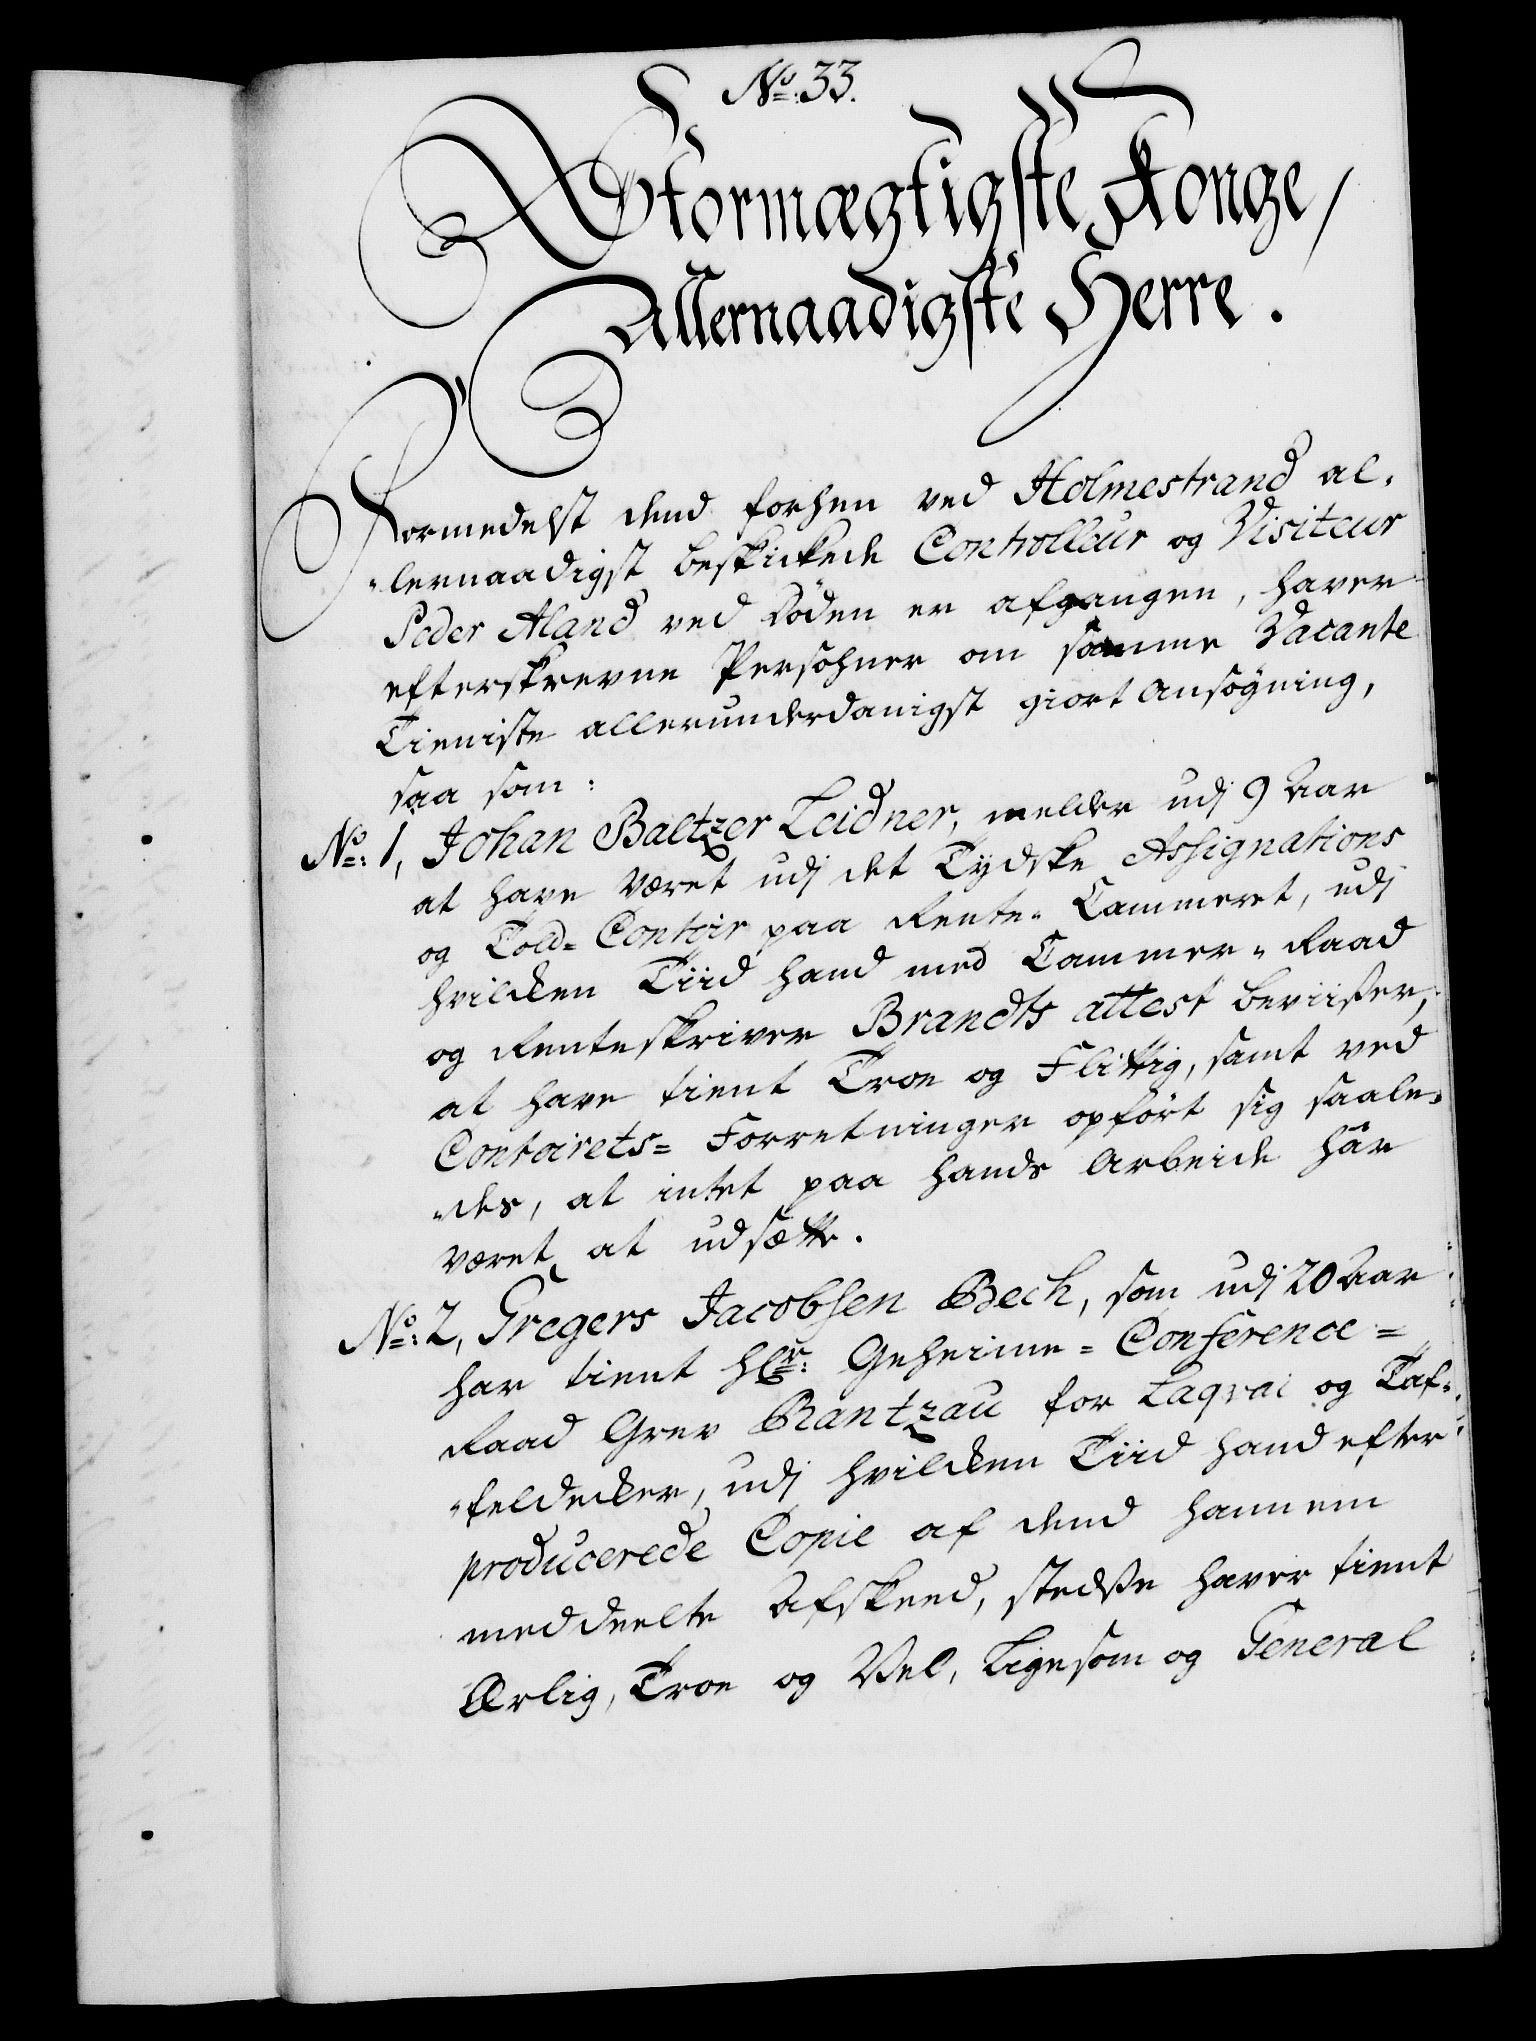 No: 33.
Stormægtigste Konge,
Allernaadigste Herre.
Formedelst dend forhen ved Holmestrand al-
-lernaadigst beskickede Controlleur og Visiteur
Peder Aland ved Døden er afgangen, haver
efterskrevne Persohner om samme Vacante
Tieniste allerunderdanigst giort Ansøgning,
saa som:
No: 1, Johan Baltzer Leidner, melder udj 9 Aar
at have været udj det Tydske Assignations
og Told-Contoir paa Rente-Cammeret, udj
hvilcken Tiid hand med Cammer-Raad
og Renteskriver Brandts attest beviisser,
at have tient Troe og Flittig, samt ved
Contoirets-Forretninger opført sig saale-
-des, at intet paa hands Arbeide har
været at udsætte.
No: 2, Gregers Jacobsen Bech, som udj 20 Aar
har tient Hr: Geheime-Conference-
Raad Grev Rantzau for Laqvai og Taf-
-feldecker, udj hvilcken Tiid hand efter
producerede Copie af dend hannem
meddeelte Afskeed, stedsse haver tient
Ærlig, Troe og Vel, Ligesom og General